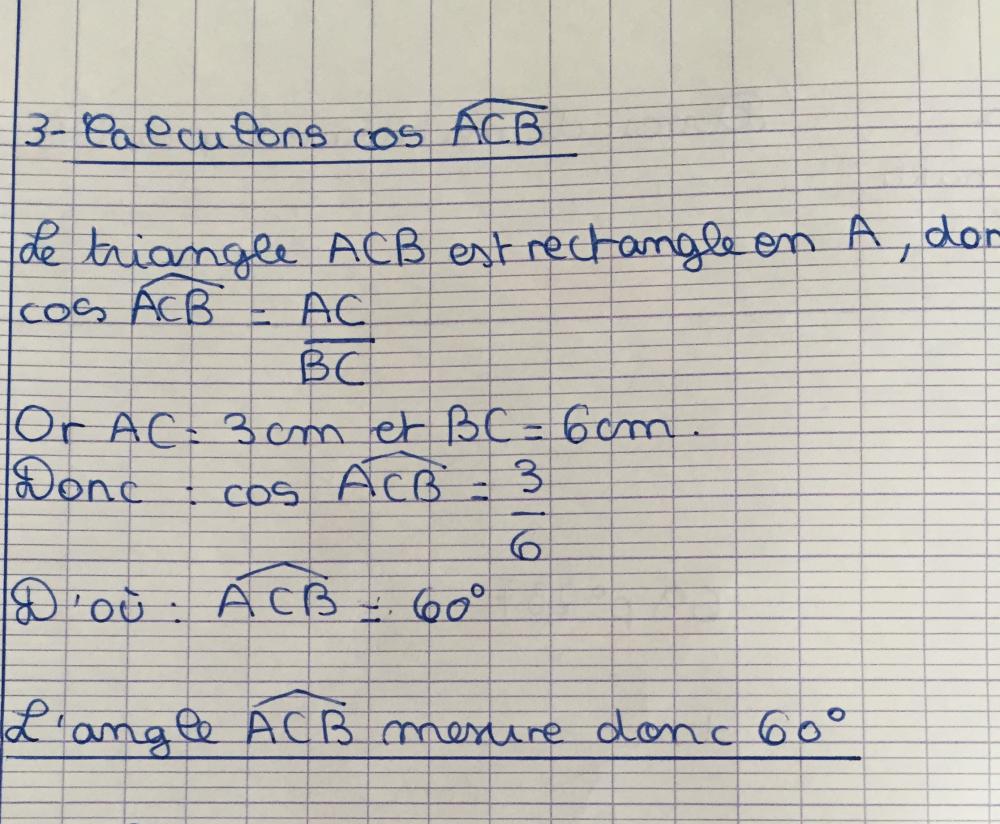 3- Calculons cos ACB
Le triangle ACB est rectangle en A, don
cos ACB = AC
BC
Or AC = 3 cm et BC = 6 cm.
Donc : cos ACB = 3
6
D'où : ACB = 60°
L'angle ACB mesure donc 60°